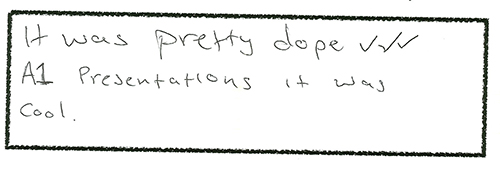 It was pretty dope ✓✓✓
A1 Presentations it was
Cool.